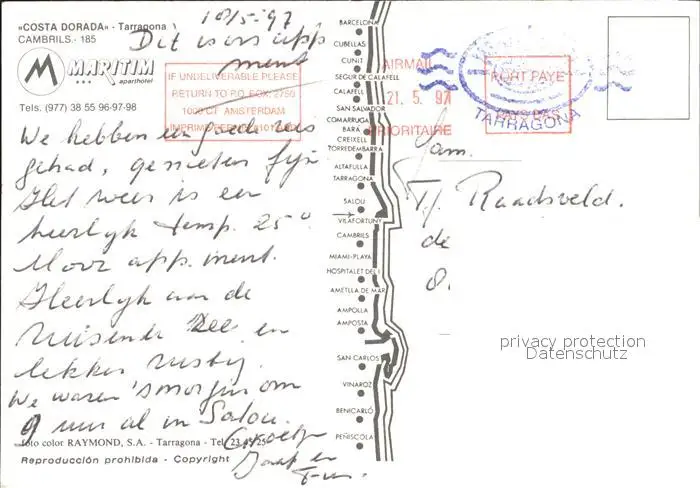 «COSTA DORADA» - Tarragona
CAMBRILS. - 185
10/5-97
Dit is ons app
ment
M MARITIM
aparthotel
Tels. (977) 38 55 96-97-98
IF UNDELIVERABLE PLEASE
RETURN TO P.O. BOX 2750
1000 CT AMSTERDAM
We hebben een goede reis
gehad, genieten fijn
Het weer is een
heerlijk temp. 25°
Mooi app.ment.
Heerlijk aan de
ruisende Zee en
lekker rustig.
We waren 'smorgens om
9 uur al in Salou.
Groetjes
Jaap en
foto color RAYMOND, S.A. - Tarragona - Tel. 23 45 25
Reproducción prohibida - Copyright
BARCELONA
CUBELLAS
CUNIT
SEGUR DE CALAFELL
CALAFELL
SAN SALVADOR
COMARRUGA
BARA
CREIXELL
TORREDEMBARRA
ALTAFULLA
TARRAGONA
SALOU
VILAFORTUNY
CAMBRILS
MIAMI-PLAYA
HOSPITALET DEL I.
AMETLLA DE MAR
AMPOLLA
AMPOSTA
SAN CARLOS
VINAROZ
BENICARLÓ
PEÑISCOLA
AIRMAIL
21. 5. 97
PRIORITAIRE
PORT PAYE
TARRAGONA
Fam.
T.J. Raadsveld.
de
8.
privacy protection
Datenschutz